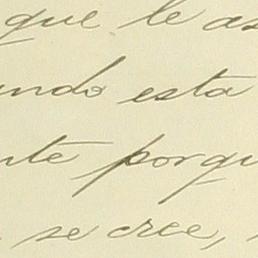 que le as
undo esta
nte porqu
se cree,